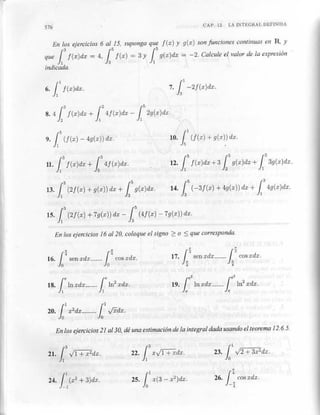 576 CAP. 12 LA INTEGRAL DEFINIDA
En los ejercicios 6 al 15, suponga que f(x) y g(x) son funciones continuas en R, y
que ∫ f(x)dx = 4, ∫ f(x) = 3 y ∫ g(x)dx = −2. Calcule el valor de la expresión
indicada.
6. ∫ f(x)dx. 7. ∫ −2f(x)dx.
8. 4 ∫ f(x)dx + ∫ 4f(x)dx − ∫ 2g(x)dx.
9. ∫ (f(x) − 4g(x)) dx. 10. ∫ (f(x) + g(x)) dx.
11. ∫ f(x)dx + ∫ 4f(x)dx. 12. ∫ f(x)dx + 3 ∫ g(x)dx + ∫ 3g(x)dx.
13. ∫ (2f(x) + g(x)) dx + ∫ g(x)dx. 14. ∫ (−3f(x) + 4g(x)) dx + ∫ 4g(x)dx.
15. ∫ (2f(x) + 7g(x)) dx − ∫ (4f(x) − 7g(x)) dx.
En los ejercicios 16 al 20, coloque el signo ≥ o ≤ que corresponda.
16. ∫ sen xdx ...... ∫ cos xdx. 17. ∫ sen xdx ...... ∫ cos xdx.
18. ∫ ln xdx ...... ∫ ln² xdx. 19. ∫ ln xdx ...... ∫ ln² xdx.
20. ∫ x²dx ...... ∫ √xdx.
En los ejercicios 21 al 30, dé una estimación de la integral dada usando el teorema 12.6.5.
21. ∫ √1 + x²dx. 22. ∫ x√1 + xdx. 23. ∫ √2 + 3x²dx.
24. ∫ (x² + 3)dx. 25. ∫ x(3 − x²)dx. 26. ∫ cos xdx.